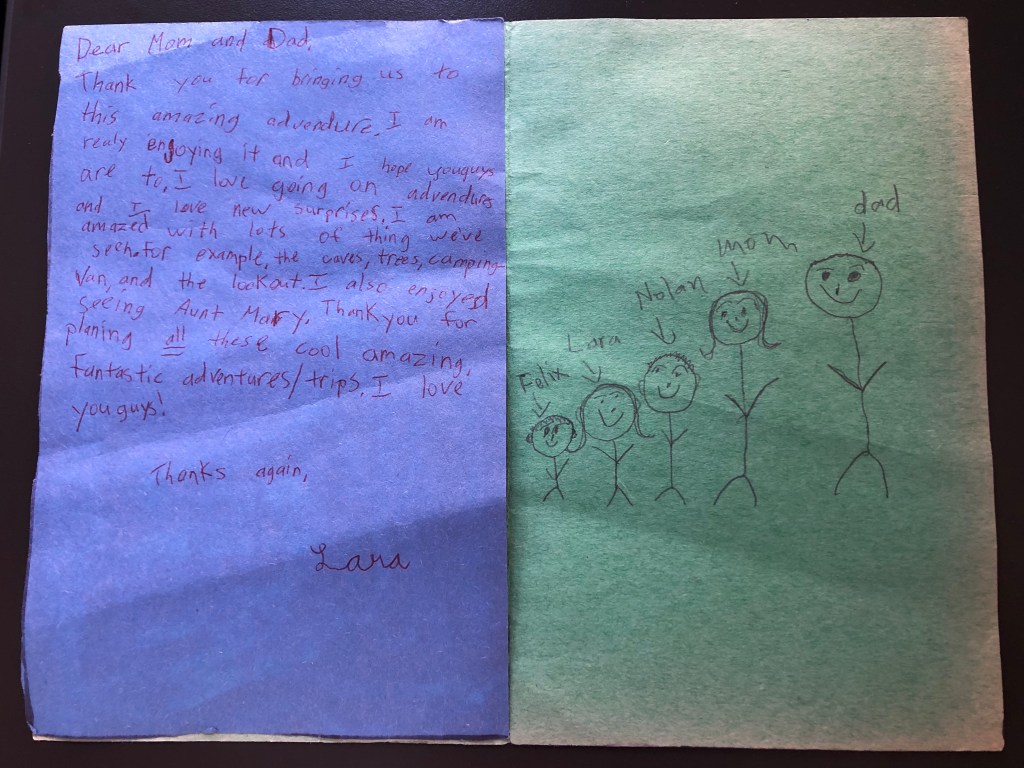 Dear Mom and Dad,
Thank you for bringing us to
this amazing advendure. I am
realy enjoying it and I hope youguys
are to, I love going on advendurs
and I love new surprises. I am
amazed with lots of thing we've
seen. for example, the caves, trees, camping-
van, and the lookout. I also enjoyed
seeing Aunt Mary. Thankyou for
planing all these cool amazing,
fantastic adventures/trips. I love
you guys!
Thanks again,
Lara
dad
mom
Nolan
Lara
Felix